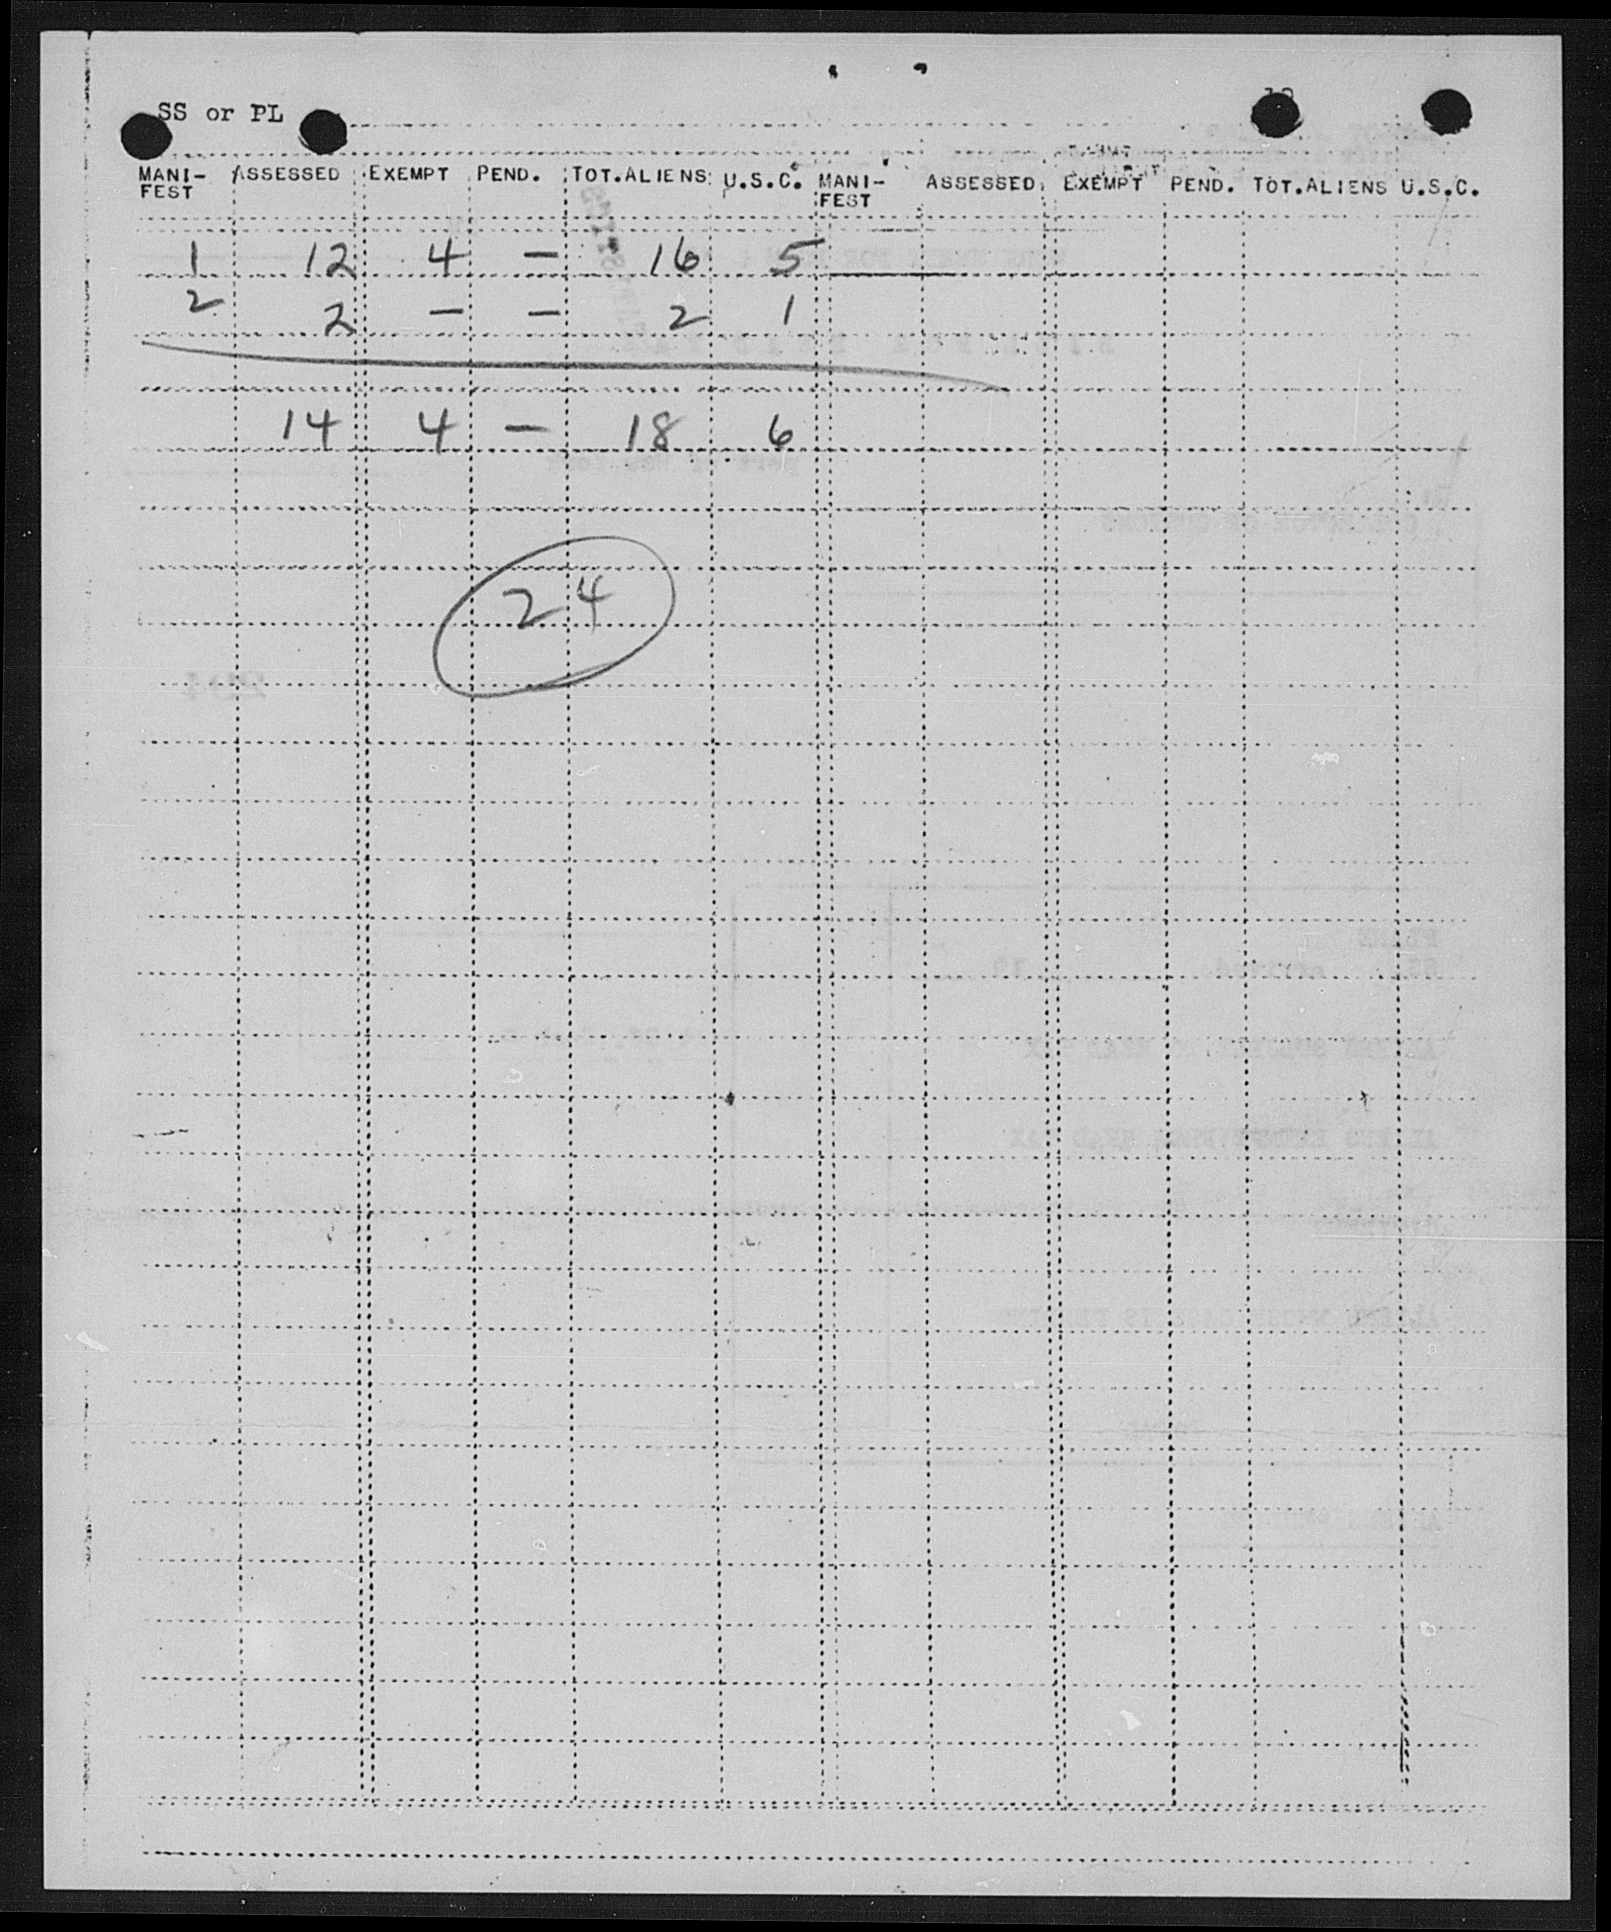 SS or PL
MANI-FEST ASSESSED EXEMPT PEND. TOT.ALIENS U.S.C. MANI-FEST ASSESSED EXEMPT PEND. TOT.ALIENS U.S.C.
1 12 4 – 16 5
2 2 – – 2 1
14 4 – 18 6
24